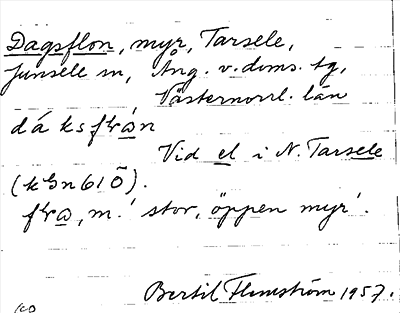 Dagsflon, myr, Tarsele,
Junsele sn, Ång. v. doms. tg,
Västernorrl. län
dá ksfrⱺn
Vid el i N. Tarsele
(kBn610).
frⱺ, m. 'stor, öppen myr'.
Bertil Flemström 1957.